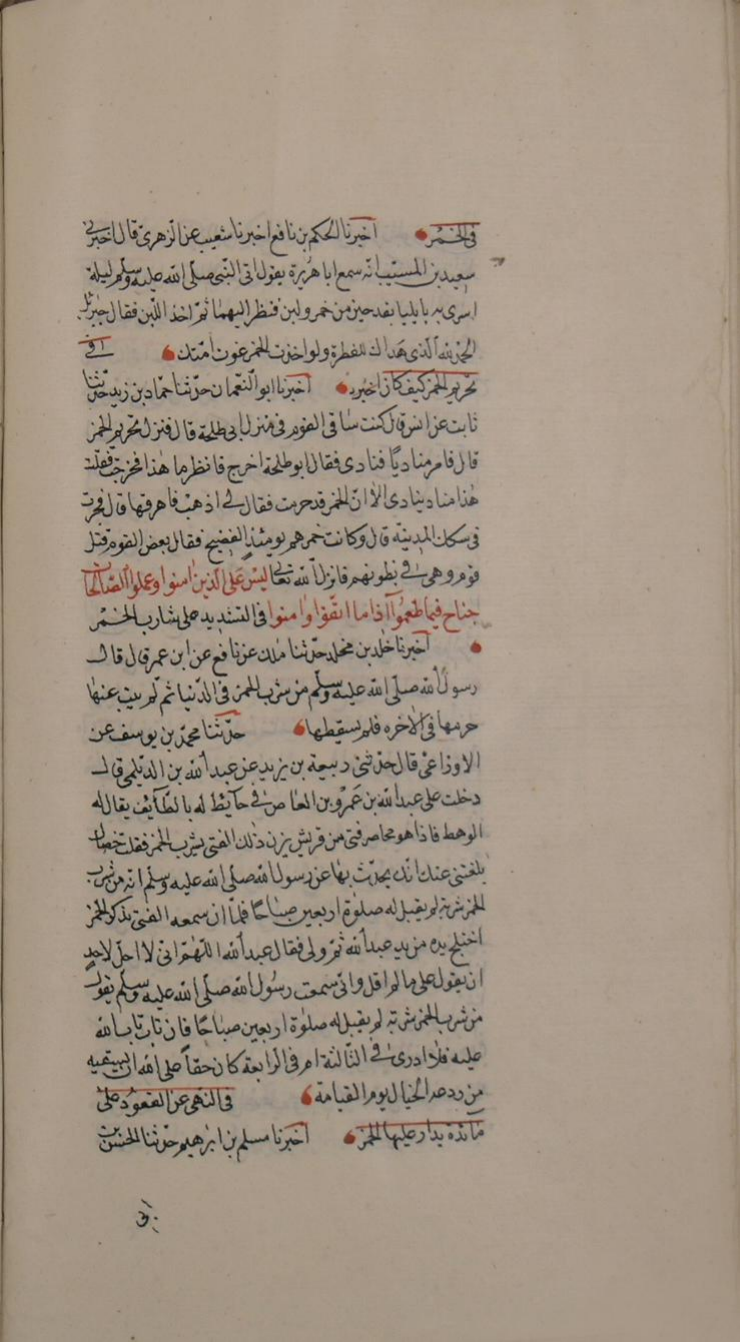 في الخمر اخبرنا الحكم بن نافع اخبرنا شعيب عن الزهري قال اخبرني
سعيد بن المسيب انه سمع ابا هريرة يقول اتي النبي صلى الله عليه وسلم ليلة
اسري به بايليا بقدحين من خمر ولبن فنظر اليهما ثم اخذ اللبن فقال جبرئل
الحمد لله الذي هداك للفطرة ولو اخذت الخمر غوت امتك في
تحريم الخمر كيف كان اخبرنا ابو النعمان حدثنا حماد بن زيد حدثنا
ثابت عن انس قال كنت ساقي القوم في منزل ابي طلحة قال فنزل تحريم الخمر
قال فامر مناديًا فنادى فقال ابو طلحة اخرج فانظر ما هذا فخرجت فقلت
هذا مناد ينادي الا ان الخمر قد حرمت فقال لي اذهب فاهرقها قال فجرت
في سكك المدينة قال وكانت خمرهم يومئذ الفضيخ فقال بعض القوم قتل
قوم وهي في بطونهم فانزل الله تعالى ليس على الذين امنوا وعملوا الصالحات
جناح فيما طعموا اذا ما اتقوا وامنوا في التشديد على شارب الخمر
اخبرنا خلد بن مخلد حدثنا ملك عن نافع عن ابن عمر قال قال
رسول الله صلى الله عليه وسلم من شرب الخمر في الدنيا ثم لم يتب عنها
حرمها في الاخره فلم يسقطها حدثنا محمد بن يوسف عن
الاوزاعي قال حدثني ربيعة بن يزيد عن عبد الله بن الديلمي قال
دخلت على عبد الله بن عمرو بن العاص في حآيط له بالطآيف يقال له
الوهط فاذا هو محاصر فتى من قريش يزن ذلك الفتى بشرب الخمر فقلت خصال
بلغتني عنك انك تحدث بها عن رسول الله صلى الله عليه وسلم انه من شرب
الخمر شربة لم يقبل له صلوة اربعين صباحًا فلما ان سمعه الفتى بذكر الخمر
اختلج يده من يد عبد الله ثم ولى فقال عبد الله اللهم اني لا احل لاحد
ان يقول علي ما لم اقل واني سمعت رسول الله صلى الله عليه وسلم يقول
من شرب الخمر شربة لم يقبل له صلوة اربعين صباحًا فان تاب تاب الله
عليه فلا ادري في الثالثة ام في الرابعة كان حقاً على الله ان يسقيه
من ردعه الخبال يوم القيامة في النهي عن القعود على
مآئدة يدار عليها الخمر اخبرنا مسلم بن ابرهيم حدثنا الحسن بن